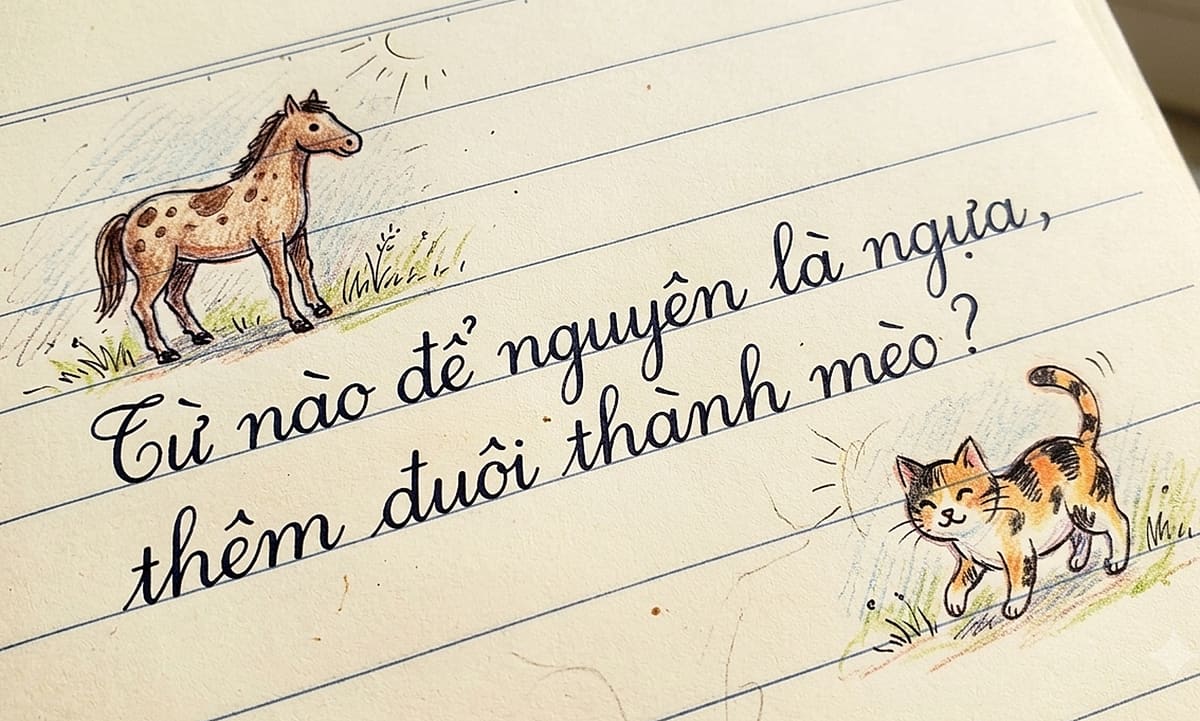 Từ nào để nguyên là ngựa,
thêm đuôi thành mèo?